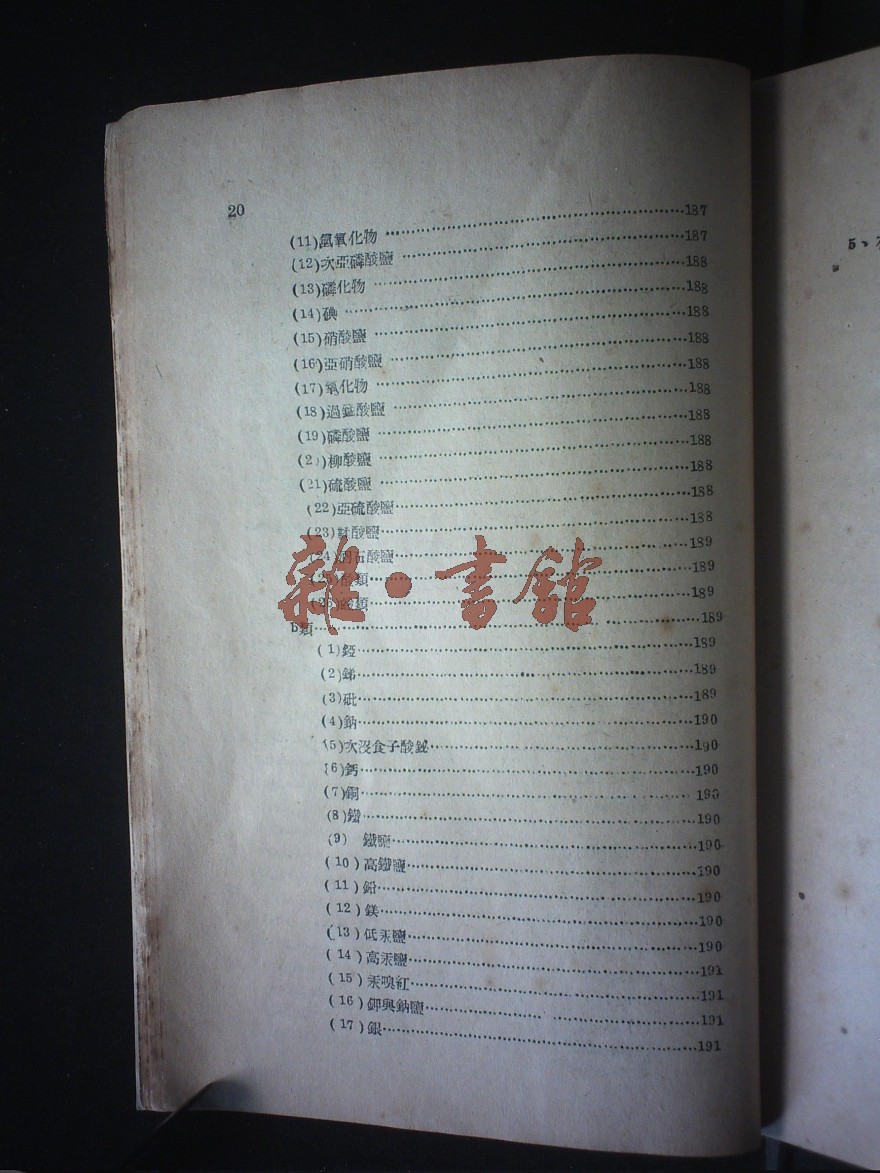 20
(11)氫氧化物……187
(12)次亞磷酸鹽……187
(13)磷化物……188
(14)碘……188
(15)硝酸鹽……188
(16)亞硝酸鹽……188
(17)氧化物……188
(18)過錳酸鹽……188
(19)磷酸鹽……188
(2 )柳酸鹽……188
(21)硫酸鹽……188
(22)亞硫酸鹽……188
(23)鞣酸鹽……188
(24)酒石酸鹽……189
類……189
類……189
b類……189
(1)錏……189
(2)銻……189
(3)砒……189
(4)鈉……190
(5)次沒食子酸鉍……190
(6)鈣……190
(7)銅……190
(8)鐵……190
(9) 鐵鹽……190
(10)高鐵鹽……190
(11)鉛……190
(12)鎂……190
(13)低汞鹽……190
(14)高汞鹽……191
(15)汞嗅紅……191
(16)鉀與鈉鹽……191
(17)銀……191
5、
雜·書館